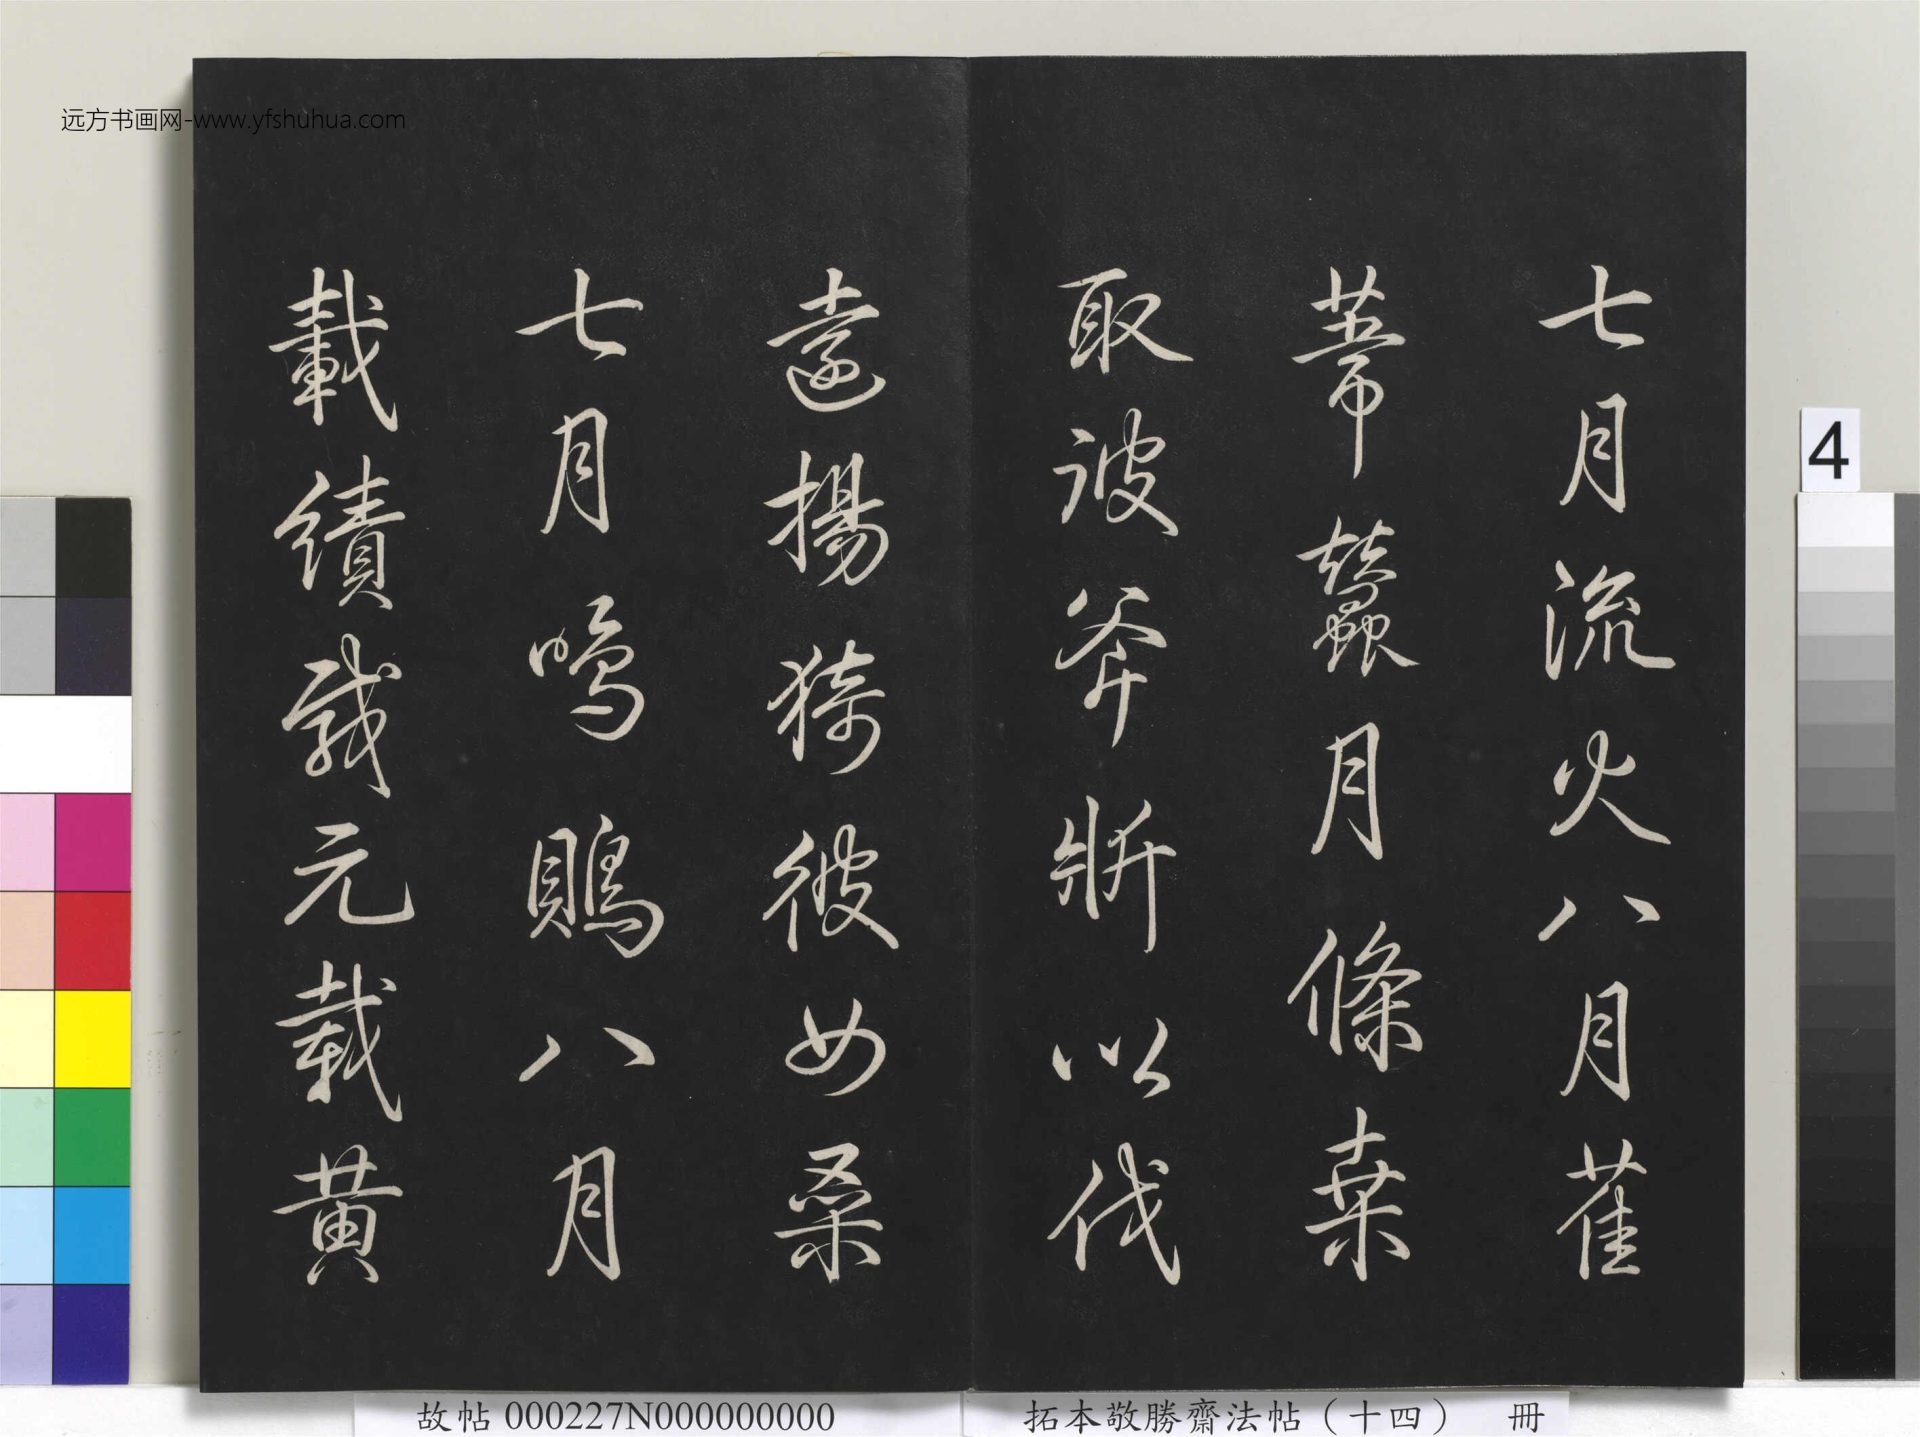 七月流火八月萑
葦蠶月條桒
取彼斧斨以伐
遠揚猗彼女桑
七月鳴鵙八月
載績載元載黃
远方书画网-www.yfshuhua.com
4
故帖 000227N000000000
拓本敬勝齋法帖（十四） 冊